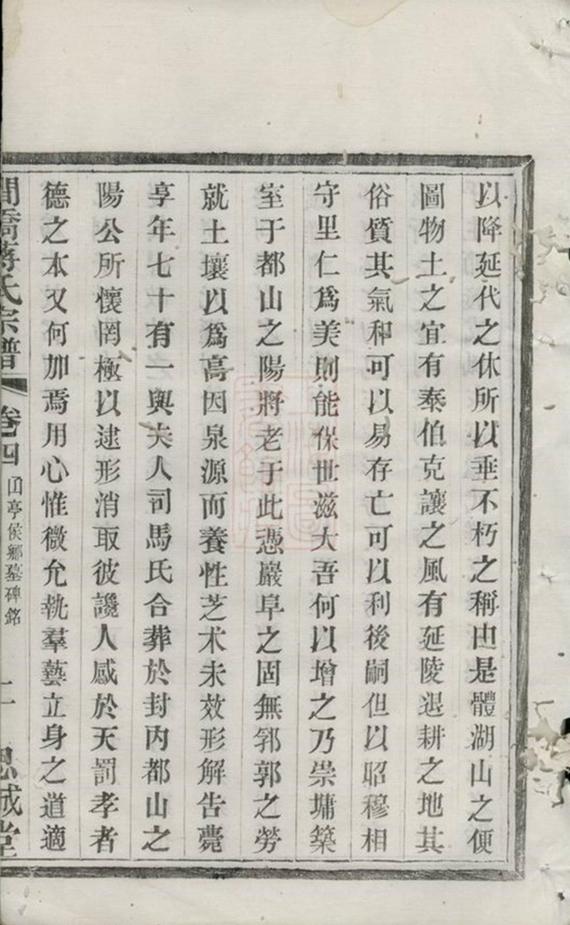 以降延代之休所以垂不朽之稱由是體湖山之便
圖物土之宜有泰伯克讓之風有延陵退耕之地其
俗質其氣和可以易存亡可以利後嗣但以昭穆相
守里仁爲美則能保世滋大吾何以增之乃崇墉築
室于都山之陽將老于此憑巖阜之固無郛郭之勞
就土壤以爲高因泉源而養性芝术未效形解告薨
享年七十有一與夫人司馬氏合葬於封內都山之
陽公所懷罔極以逮形消取彼讒人感於天罰孝者
德之本又何加焉用心惟微允執羣藝立身之道適
橋蔣氏宗譜 卷四 亭侯鄉墓碑銘 二 思誠堂